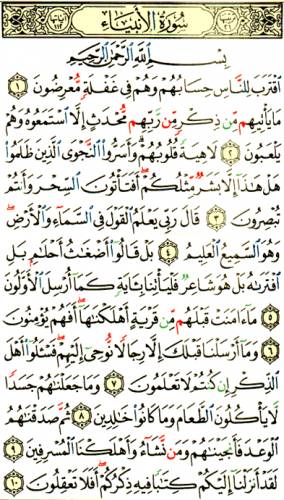 سُورَةُ الأَنبِيَاءِ
بِسْمِ اللَّهِ الرَّحْمَٰنِ الرَّحِيمِ
ٱقْتَرَبَ لِلنَّاسِ حِسَابُهُمْ وَهُمْ فِي غَفْلَةٍ مُّعْرِضُونَ ١
مَا يَأْتِيهِم مِّن ذِكْرٍ مِّن رَّبِّهِم مُّحْدَثٍ إِلَّا ٱسْتَمَعُوهُ وَهُمْ
يَلْعَبُونَ ٢ لَاهِيَةً قُلُوبُهُمْ وَأَسَرُّوا۟ ٱلنَّجْوَى ٱلَّذِينَ ظَلَمُوا۟
هَلْ هَٰذَآ إِلَّا بَشَرٌ مِّثْلُكُمْ أَفَتَأْتُونَ ٱلسِّحْرَ وَأَنتُمْ
تُبْصِرُونَ ٣ قَالَ رَبِّي يَعْلَمُ ٱلْقَوْلَ فِي ٱلسَّمَآءِ وَٱلْأَرْضِ
وَهُوَ ٱلسَّمِيعُ ٱلْعَلِيمُ ٤ بَلْ قَالُوٓا۟ أَضْغَٰثُ أَحْلَٰمٍ بَلِ
ٱفْتَرَىٰهُ بَلْ هُوَ شَاعِرٌ فَلْيَأْتِنَا بِـَٔايَةٍ كَمَآ أُرْسِلَ ٱلْأَوَّلُونَ
٥ مَآ ءَامَنَتْ قَبْلَهُم مِّن قَرْيَةٍ أَهْلَكْنَٰهَآ أَفَهُمْ يُؤْمِنُونَ
٦ وَمَآ أَرْسَلْنَا قَبْلَكَ إِلَّا رِجَالًا نُّوحِيٓ إِلَيْهِمْ فَسْـَٔلُوٓا۟ أَهْلَ
ٱلذِّكْرِ إِن كُنتُمْ لَا تَعْلَمُونَ ٧ وَمَا جَعَلْنَٰهُمْ جَسَدًا
لَّا يَأْكُلُونَ ٱلطَّعَامَ وَمَا كَانُوا۟ خَٰلِدِينَ ٨ ثُمَّ صَدَقْنَٰهُمُ
ٱلْوَعْدَ فَأَنجَيْنَٰهُمْ وَمَن نَّشَآءُ وَأَهْلَكْنَا ٱلْمُسْرِفِينَ ٩
لَقَدْ أَنزَلْنَآ إِلَيْكُمْ كِتَٰبًا فِيهِ ذِكْرُكُمْ أَفَلَا تَعْقِلُونَ ١٠